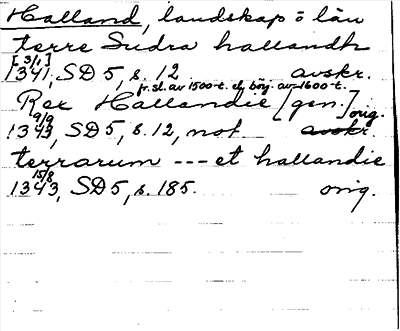 Halland, landskap o län
terre Sudra hallandh
[3/1]
1341, SD 5, s. 12 avskr.
fr. sl. av 1500-t. el. börj. av 1600-t.
Rex Hallandie [gen.] orig.
9/9
1343, SD 5, s. 12, not avskr.
terrarum --- et hallandie
15/8
1343, SD 5, s. 185. orig.